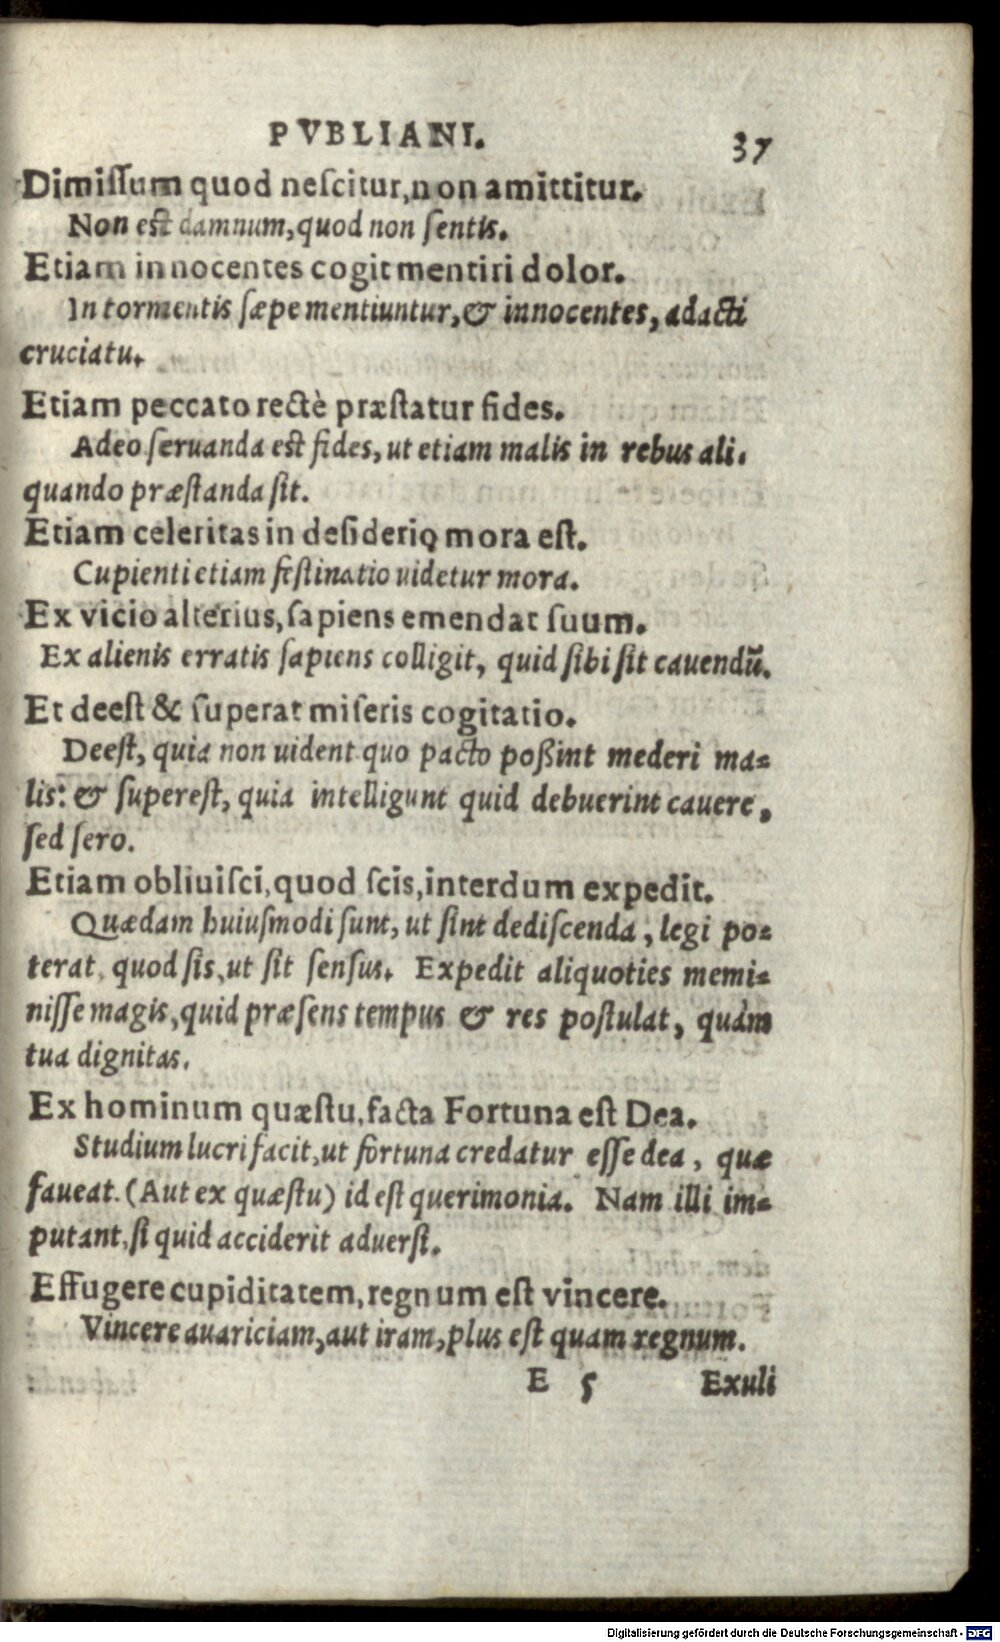 PVBLIANI. 37
Dimiſſum quod neſcitur, non amittitur.
Non eſt damnum, quod non ſentis.
Etiam innocentes cogit mentiri dolor.
In tormentis ſæpe mentiuntur, & innocentes, adacti
cruciatu.
Etiam peccato rectè præſtatur fides.
Adeo ſeruanda eſt fides, ut etiam malis in rebus ali-
quando præſtanda ſit.
Etiam celeritas in deſiderio mora eſt.
Cupienti etiam feſtinatio uidetur mora.
Ex vicio alterius, ſapiens emendat ſuum.
Ex alienis erratis ſapiens colligit, quid ſibi ſit cauendũ.
Et deeſt & ſuperat miſeris cogitatio.
Deeſt, quia non uident quo pacto poßint mederi ma-
lis: & ſupereſt, quia intelligunt quid debuerint cauere,
ſed ſero.
Etiam obliuiſci, quod ſcis, interdum expedit.
Quædam huiuſmodi ſunt, ut ſint dediſcenda, legi po-
terat, quod ſis, ut ſit ſenſus. Expedit aliquoties memi-
niſſe magis, quid præſens tempus & res poſtulat, quàm
tua dignitas.
Ex hominum quæſtu, facta Fortuna eſt Dea.
Studium lucri facit, ut fortuna credatur eſſe dea, quæ
faueat. (Aut ex quæſtu) id eſt querimonia. Nam illi im-
putant, ſi quid acciderit aduerſi.
Effugere cupiditatem, regnum eſt vincere.
Vincere auariciam, aut iram, plus eſt quam regnum.
E 5 Exuli
Digitalisierung gefördert durch die Deutsche Forschungsgemeinschaft - DFG